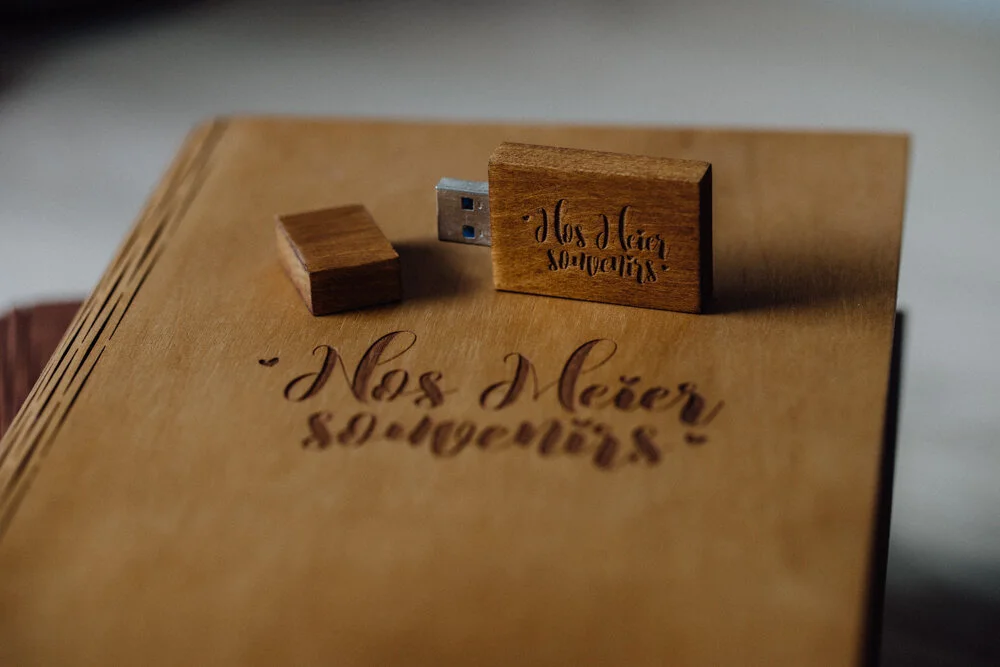 Nos Meier
souvenirs
Nos Meier
souvenirs